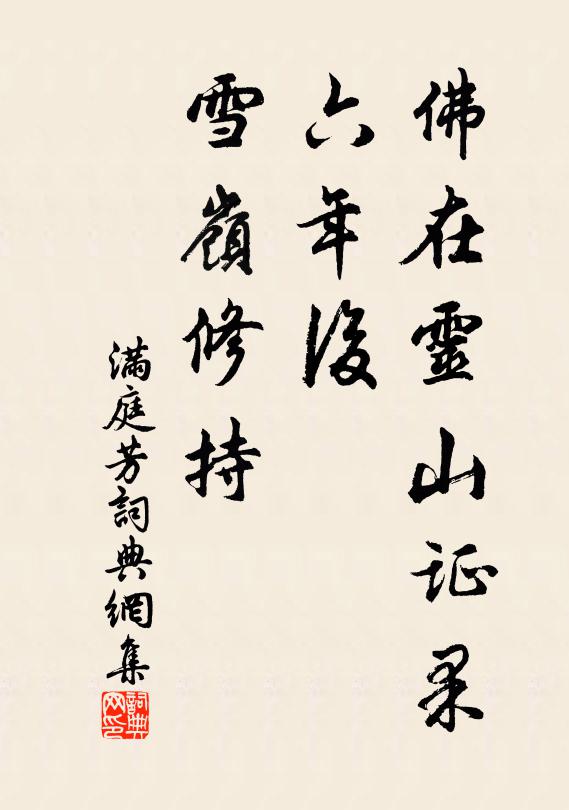 佛在靈山证果
六年後
雪嶺修持
满庭芳詞典網集
詞典网印